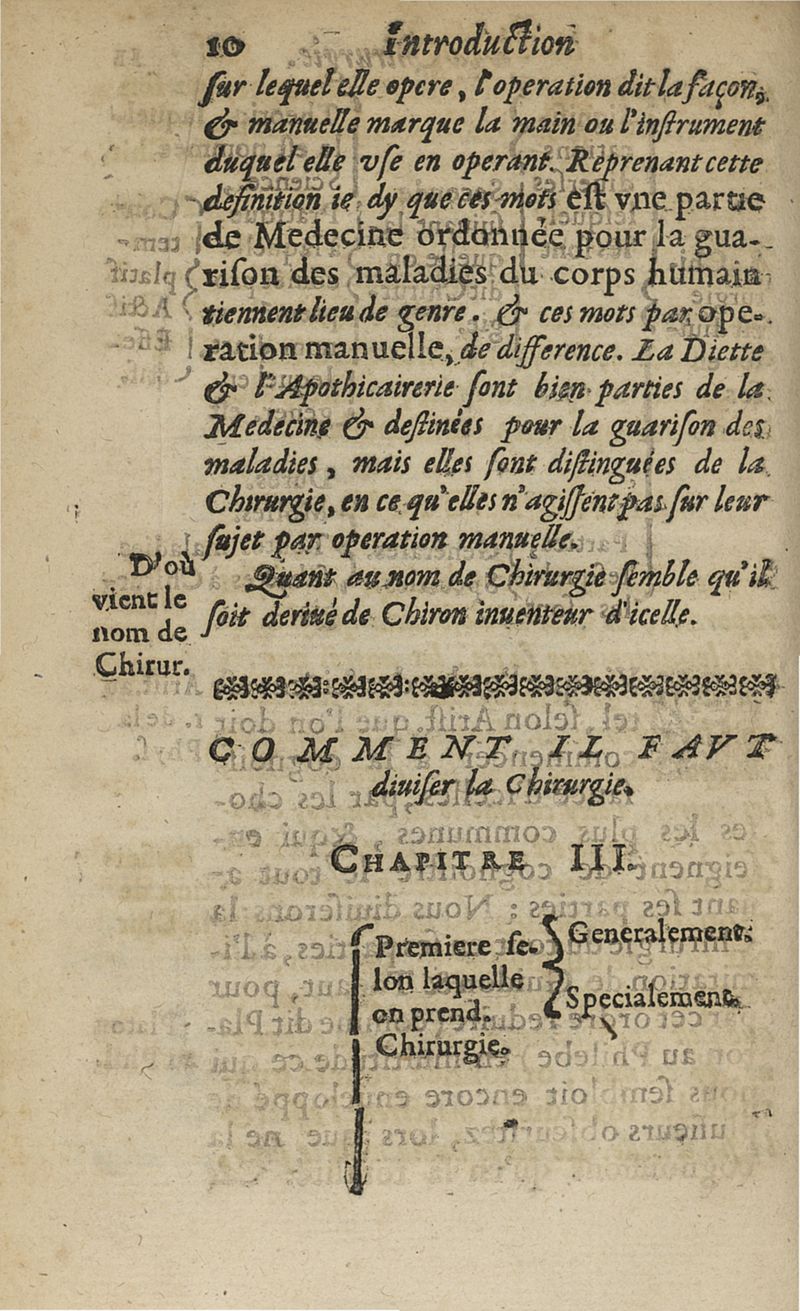 10 Introduction
sur lequel elle opere, l'operation dit la façon,
& manuelle marque la main ou l'instrument
duquel elle vse en operant. Reprenant cette
definition ie dy que ces mots est vne partie
de Medecine ordonnée pour la gua-
rison des maladies du corps humain
tiennent lieu de genre. & ces mots par ope-
ration manuelle, de difference. La Diette
& l'Apothicairerie sont bien parties de la
Medecine & destinées pour la guarison des
maladies, mais elles sont distinguées de la
Chirurgie, en ce qu'elles n'agissent pas sur leur
sujet par operation manuelle.
D'où
vient le
nom de
Chirur.
Quant au nom de Chirurgie semble qu'il
soit deriué de Chiron inuenteur d'icelle.
COMMENT IL FAVT
diuiser la Chirurgie.
CHAPITRE III.
Premiere se-
lon laquelle
on prend
Chirurgie.
Generalement.
Specialement.